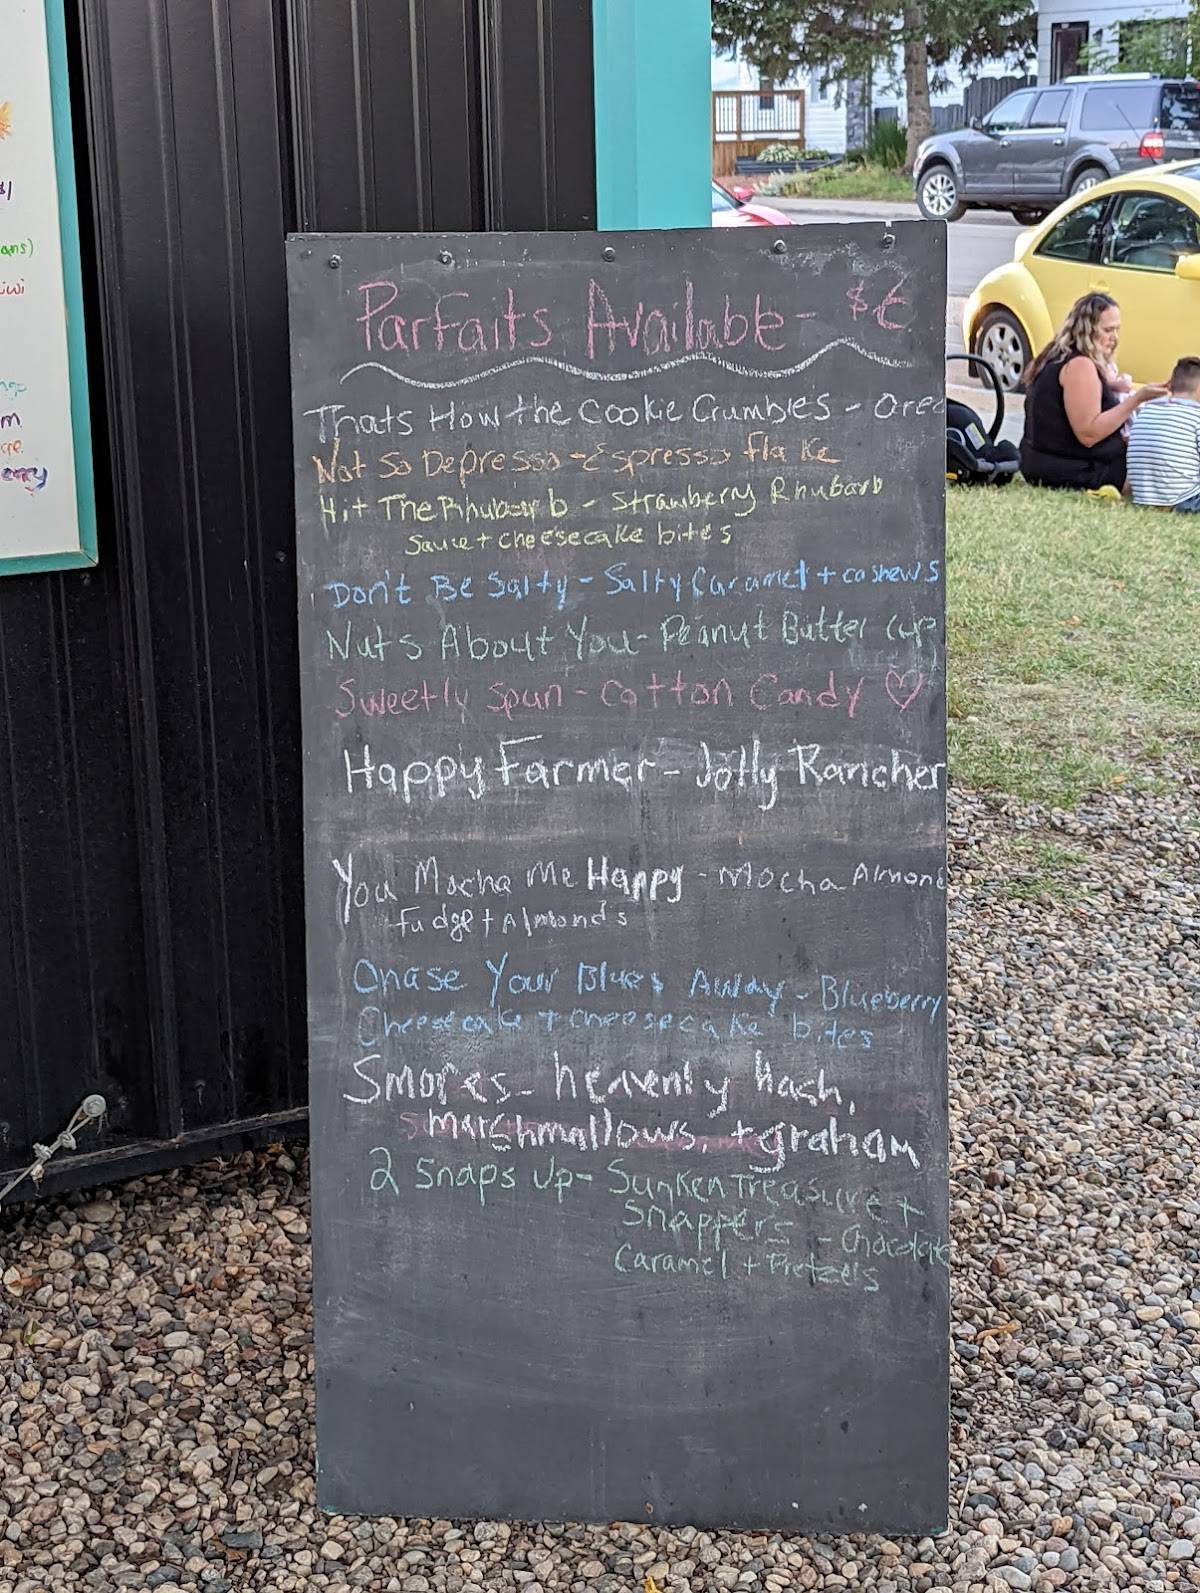 Parfaits Available - $6
Thats How the Cookie Crumbles - Oreo
Not So Depresso - Espresso flake
Hit The Rhubarb - Strawberry Rhubarb
Sauce + cheesecake bites
Don't Be Salty - Salty Caramel + cashews
Nuts About You - Peanut Butter Cups
Sweetly Spun - Cotton Candy ♡
Happy Farmer - Jolly Rancher
You Mocha Me Happy - Mocha Almond
fudge + Almonds
Chase Your Blues Away - Blueberry
Cheesecake + cheesecake bites
Smores - heavenly hash,
marshmallows, + graham
2 Snaps Up - Sunken Treasure +
Snappers - Chocolate
Caramel + Pretzels
ans)
iwi
m
erry